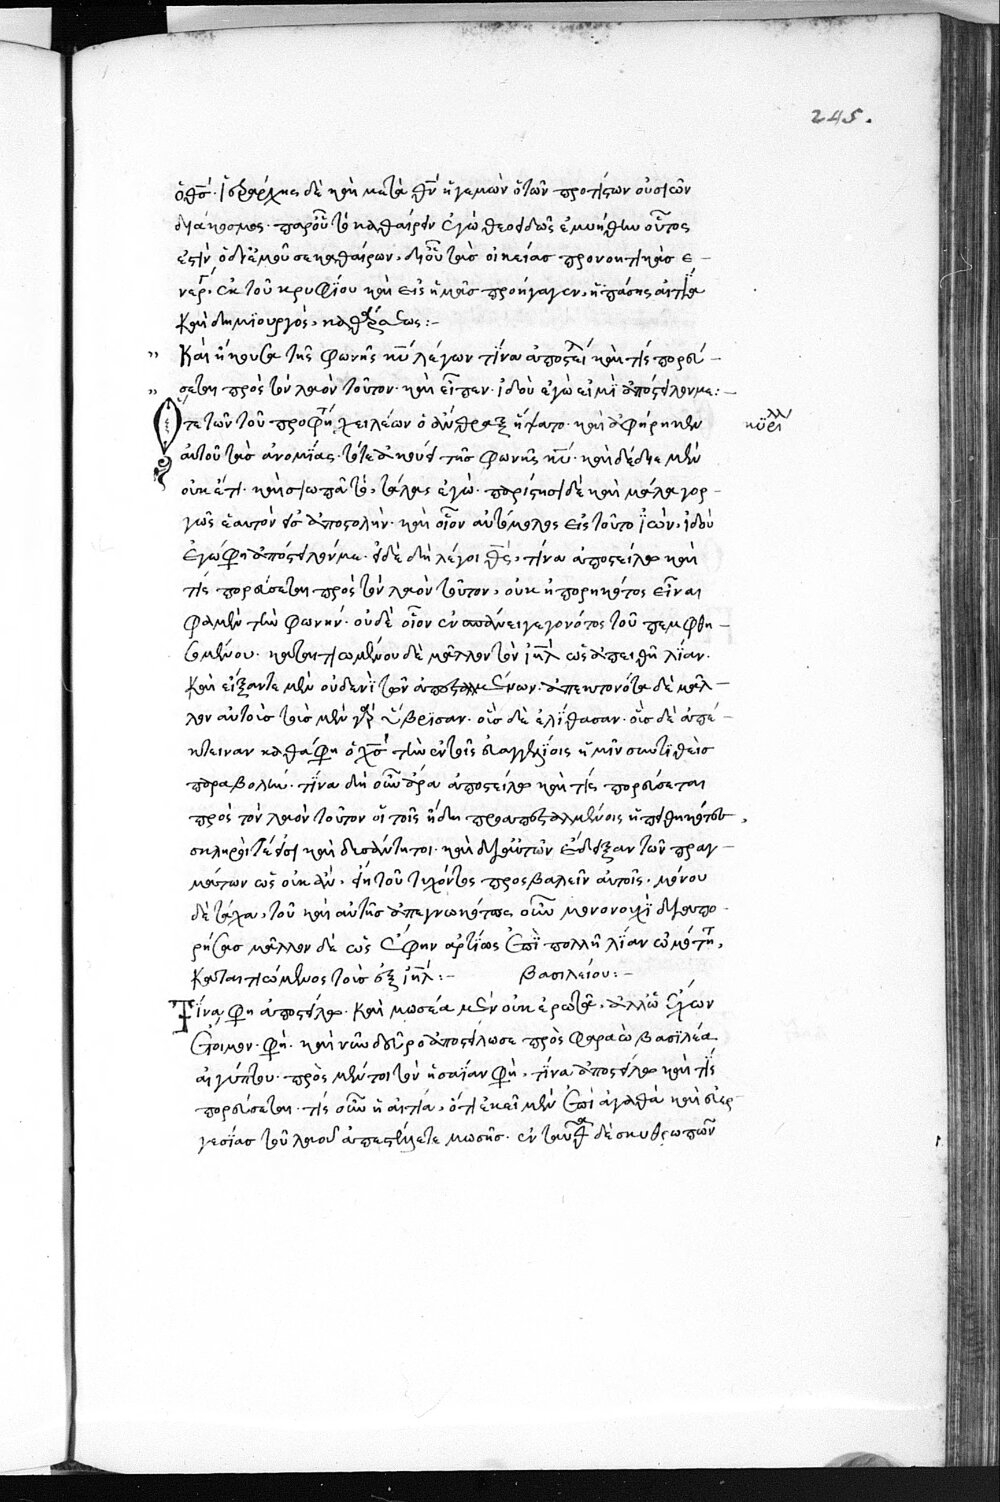 245.
ὁ θσ̅. ἱεράρχης δὲ καὶ μετὰ θν̅ ἡγεμὼν ὁ τῶν πρωτίστων οὐσιῶν
διάκοσμος. παρ' οὗ τὸ καθαίρειν ἐγὼ θεοειδῶς ἐμυήθην οὗτός
ἐστιν ὁ δι' ἐμοῦ σε καθαίρων. δι' οὗ τὰς οἰκείας προνοητικὰς ἐ-
νερ. ἐκ τοῦ κρυφίου καὶ εἰς ἡμᾶς προήγαγεν, ἡ πάσης αἰτία
καὶ δημιουργὸς καθάρσεως:-
Καὶ ἤκουσα τῆς φωνῆς κυ̅ λέγοντος τίνα ἀποστείλω καὶ τίς πορεύ-
σεται πρὸς τὸν λαὸν τοῦτον. καὶ εἶπεν. ἰδοὺ ἐγώ εἰμι ἀπόστειλόν με:-
Ὅτε τῶν τοῦ προφήτου χειλέων ὁ ἄνθραξ ἥψατο. καὶ ἀφῄρηκεν
κυριλλ
αὐτοῦ τὰς ἀνομίας. τότε ἀκούει τῆς φωνῆς κυ̅. καὶ δέδιε μὲν
οὐκ ἔτι. καὶ σιωπᾷ τὸ, τάλας ἐγώ. παρίστησι δὲ καὶ μάλα γορ-
γῶς ἑαυτὸν εἰς ἀποστολήν. καὶ οἷον αὐτόμολος εἰς τοῦτο ἰὼν, ἰδοὺ
ἐγώ φησι ἀπόστειλόν με. εἰ δὲ δὴ λέγοι θς̅, τίνα ἀποστείλω καὶ
τίς πορεύσεται πρὸς τὸν λαὸν τοῦτον, οὐκ ἠπορηκότος εἶναι
φαμὲν τὴν φωνήν. οὐδὲ οἷον ἐν σπάνει γεγονότος τοῦ πεμφθη-
σομένου. καταιτιωμένου δὲ μᾶλλον τὸν ιη̅λ ὡς ἀπειθῆ λίαν.
καὶ εἴξαντα μὲν οὐδενὶ τῶν ἀπεσταλμένων. ἀπεκτονότα δὲ μᾶλ-
λον αὐτοὺς τοὺς μὲν γὰρ ὕβρισαν. οὓς δὲ ἐλίθασαν. οὓς δὲ ἀπέ-
κτειναν καθά φησι ὁ χσ̅ τὴν ἐν τοῖς εὐαγγελίοις ἡμῖν συντιθεὶς
παραβολήν. τίνα δὴ οὖν ἄρα ἀποστείλω καὶ τίς πορεύσεται
πρὸς τὸν λαὸν τοῦτον εἰ τοῖς ἤδη προαπεσταλμένοις ἠπειθηκότες,
σκληροί τέ εἰσι καὶ δυσάντητοι. καὶ δι' αὐτῶν ἔδειξαν τῶν πραγ-
μάτων ὡς οὐκ ἂν, εἴη τοῦ τυχόντος προσβαλεῖν αὐτοῖς. μόνου
δὲ τάχα, τοῦ καὶ αὐτῆς ἀπεγνωκότος οὖν μονονουχὶ διηπο-
ρήσας μᾶλλον δὲ ὡς ἔφην ἀρτίως ἐπὶ πολλῇ λίαν ὠμότητι,
καταιτιώμενος τοὺς ἐξ ιη̅λ:-
βασιλείου:-
Τίνα φησὶ ἀποστείλω. καὶ μωσέα μὲν οὐκ ἐρωτᾷ, ἀλλ' ὡς ἔχων
ἕτοιμον. φησί. καὶ νῦν δεῦρο ἀποστείλω σε πρὸς φαραὼ βασιλέα
αἰγύπτου. πρὸς μέντοι τὸν ἡσαΐαν φησὶ, τίνα ἀποστείλω καὶ τίς
πορεύσεται. τίς οὖν ἡ αἰτία, ὅτι ἐκεῖ μὲν ἐπὶ ἀγαθὰ καὶ εὐερ-
γεσίας τοῦ λαοῦ ἀπεστέλλετο μωσῆς. ἐνταῦθα δὲ σκυθρωπῶν